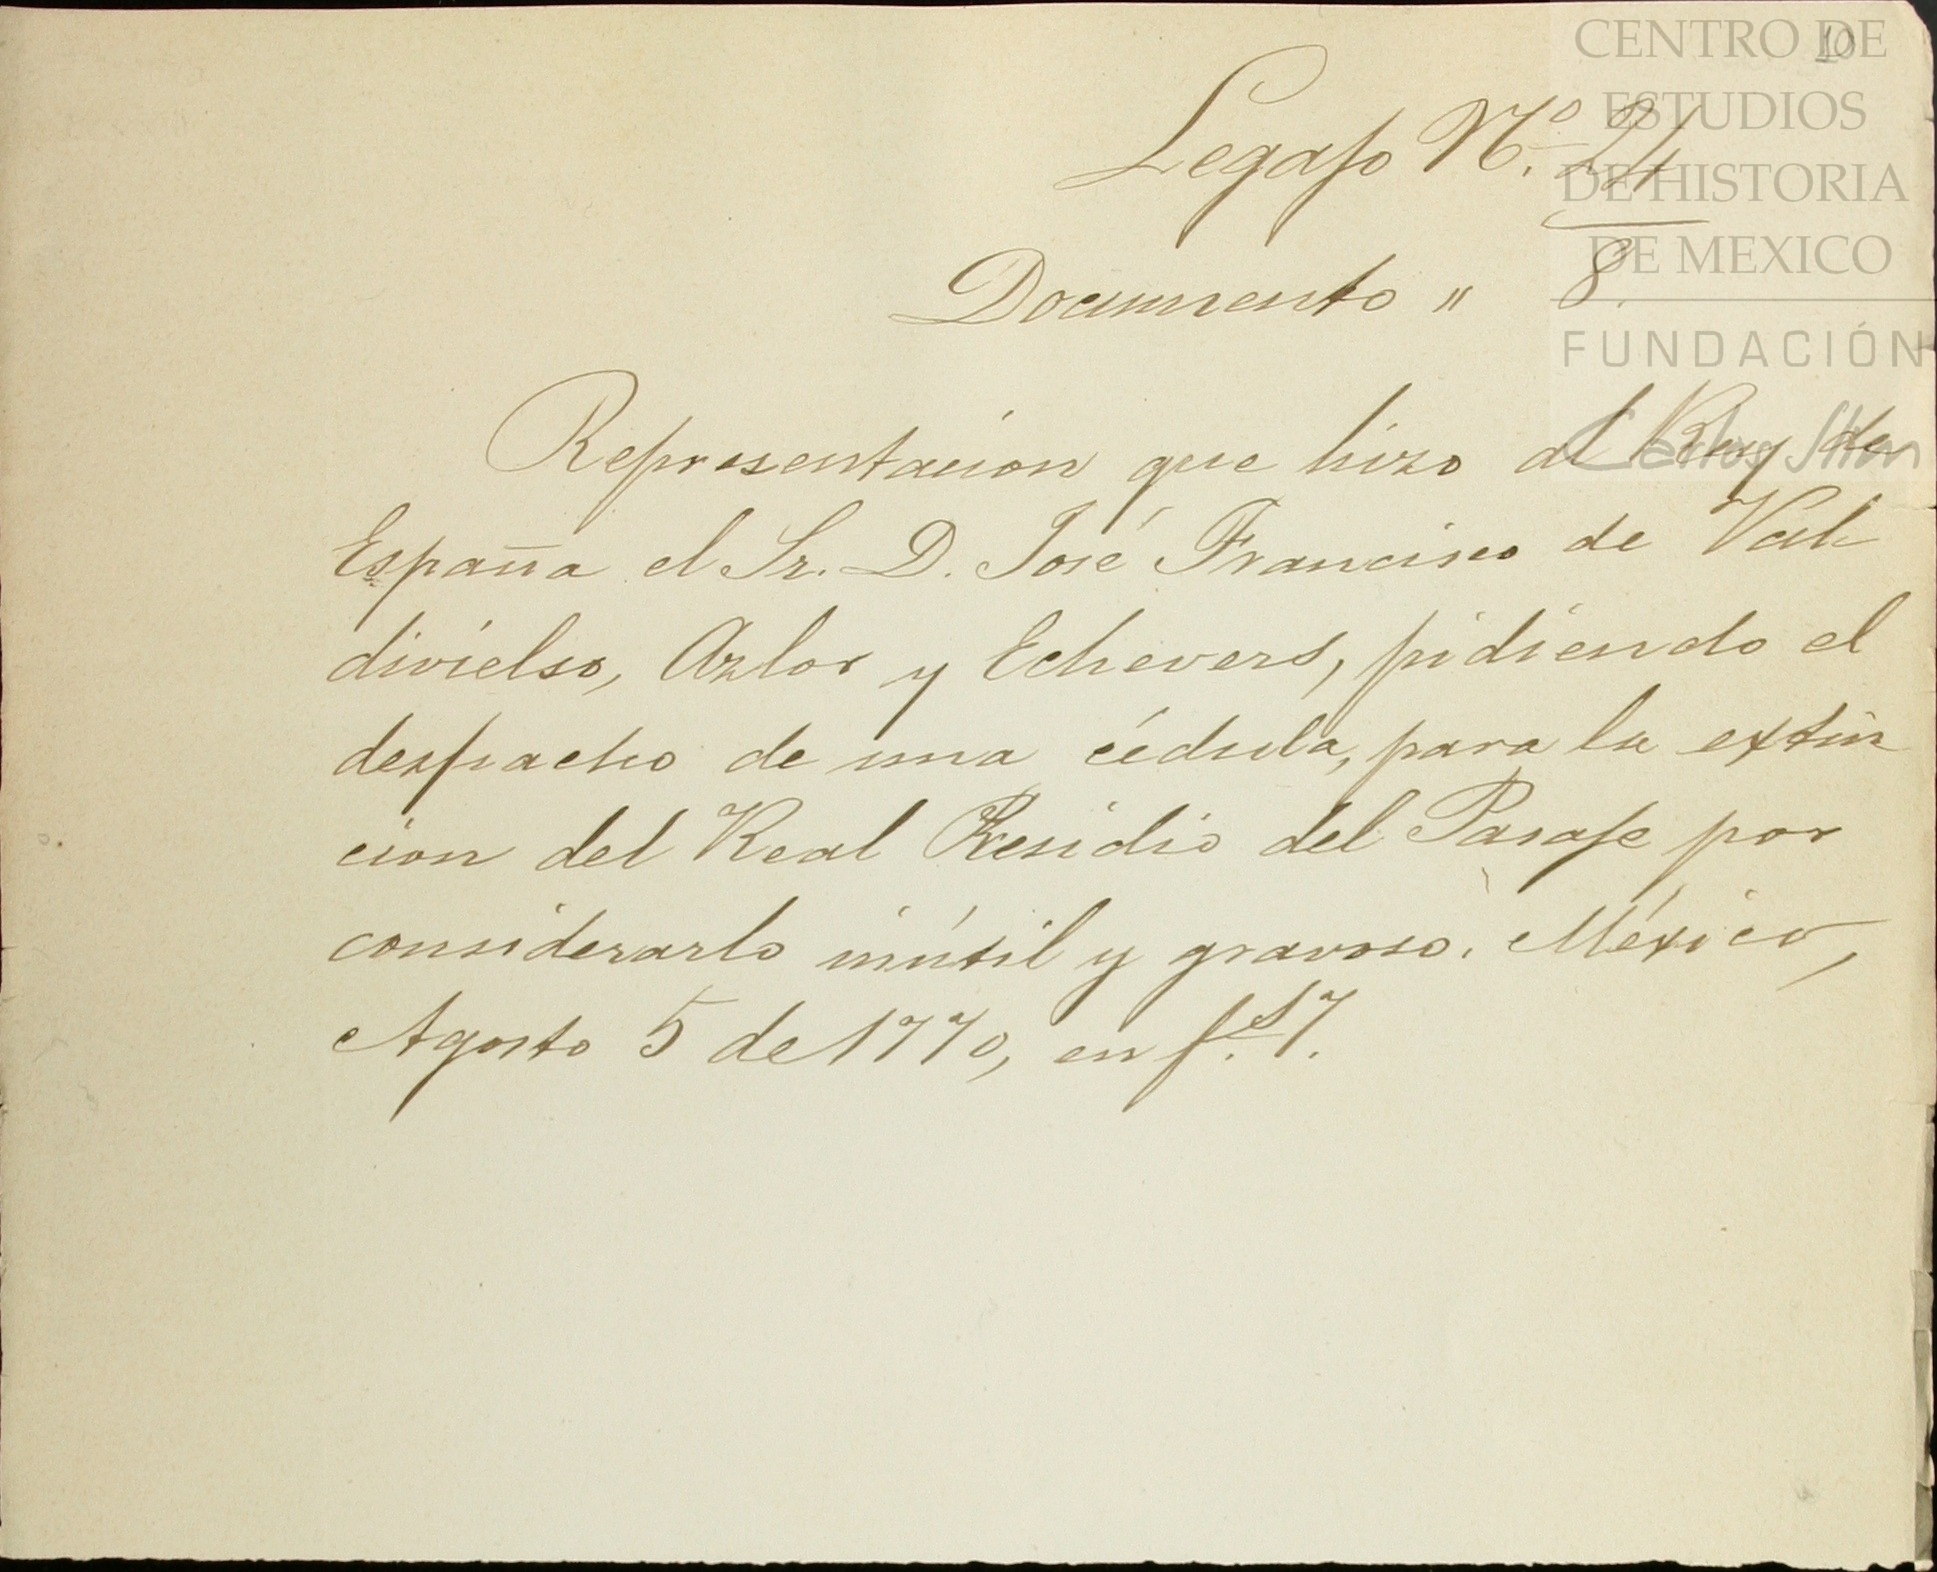 10
CENTRO DE
ESTUDIOS
DE HISTORIA
DE MEXICO
FUNDACIÓN
Carlos Slim
Legajo Nº. 24
Documento " 8.
Representacion que hizo al Rey de
España el Sr. D. José Francisco de Val
divielso, Azlor y Echevers, pidiendo el
despacho de una cédula, para la extin
cion del Real Presidio del Pasaje por
considerarlo inútil y gravoso. México,
Agosto 5 de 1770, en f.s 7.